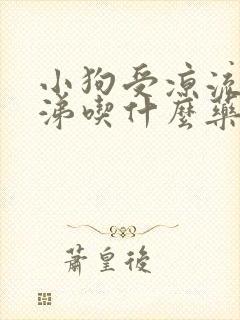 小狗受凉流
涕喫什麼藥
蕭皇後